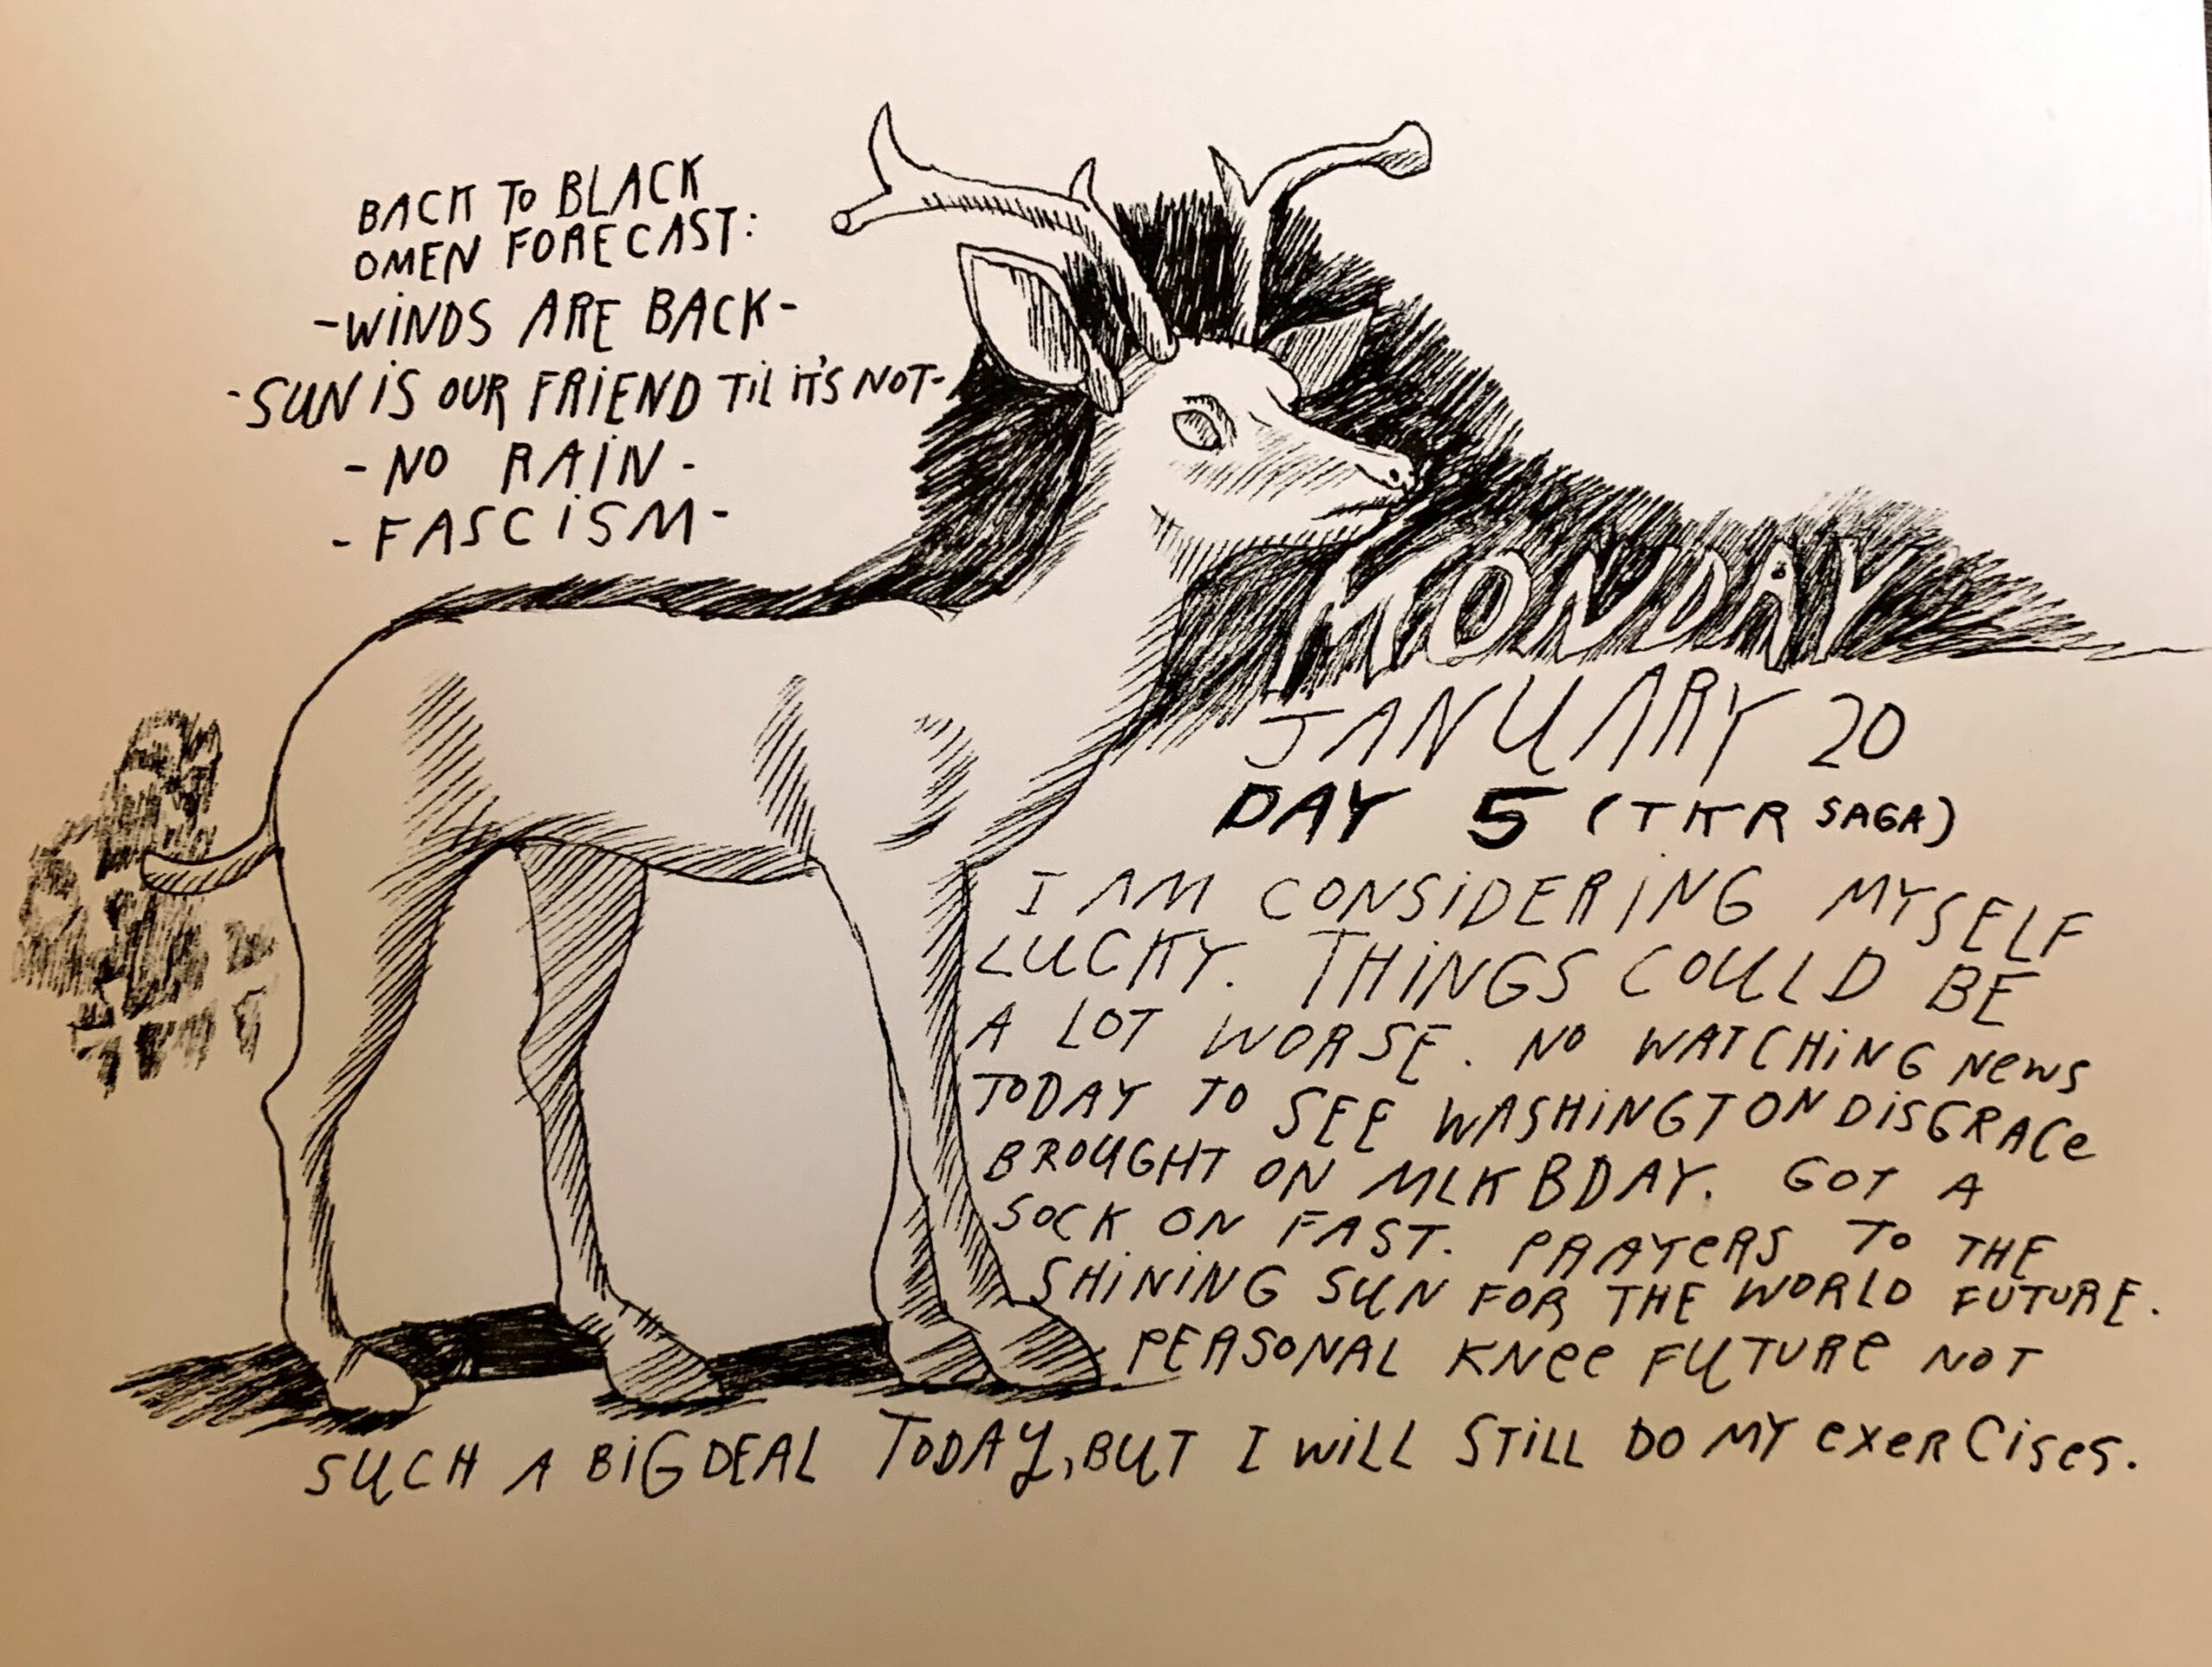 BACK TO BLACK
OMEN FORECAST:
-WINDS ARE BACK-
-SUN IS OUR FRIEND TIL IT'S NOT-
- NO RAIN -
- FASCISM -
MONDAY
JANUARY 20
DAY 5 (TKR SAGA)
I AM CONSIDERING MYSELF
LUCKY. THINGS COULD BE
A LOT WORSE. NO WATCHING NEWS
TODAY TO SEE WASHINGTON DISGRACE
BROUGHT ON MLK BDAY. GOT A
SOCK ON FAST. PRAYERS TO THE
SHINING SUN FOR THE WORLD FUTURE.
PERSONAL KNEE FUTURE NOT
SUCH A BIG DEAL TODAY, BUT I WILL STILL DO MY EXERCISES.